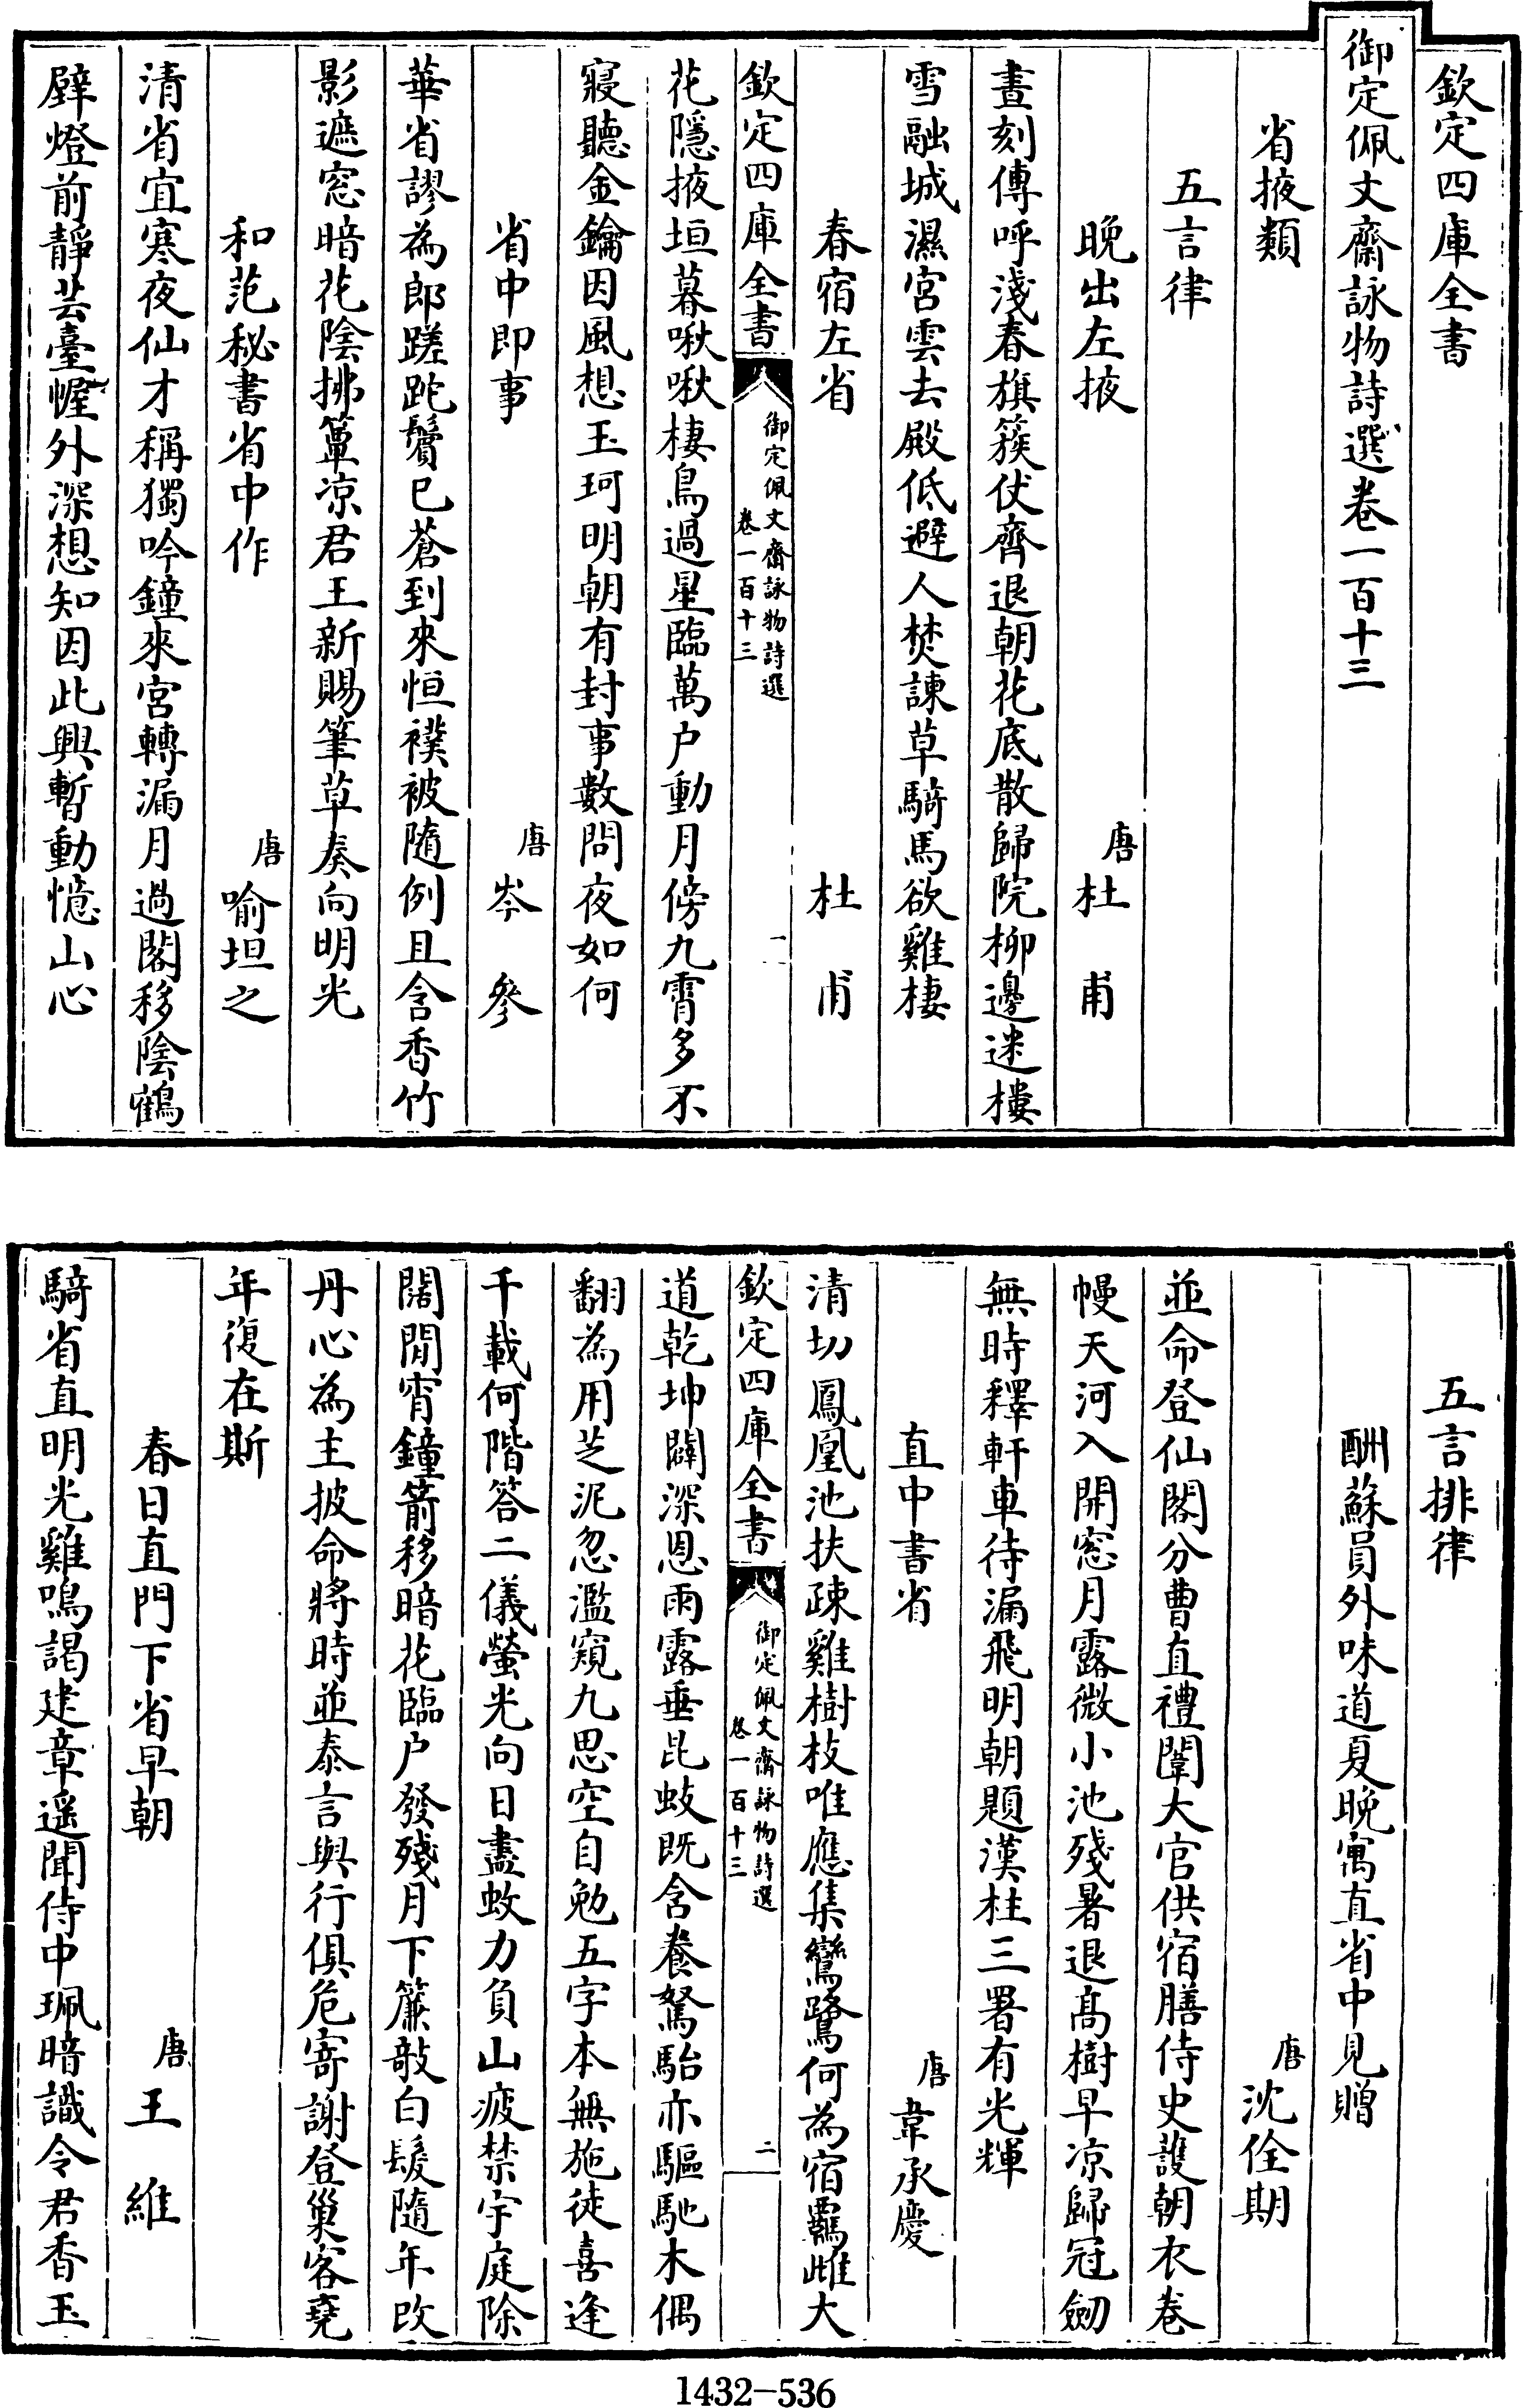 欽定四庫全書
御定佩文齋詠物詩選卷一百十三
省掖類
五言律
晚出左掖　唐杜甫
晝刻傳呼淺春旗簇仗齊退朝花底散歸院柳邊迷樓
雪融城濕宮雲去殿低避人焚諫草騎馬欲雞棲
春宿左省　杜甫
欽定四庫全書
御定佩文齋詠物詩選
卷一百十三
一
花隱掖垣暮啾啾棲鳥過星臨萬户動月傍九霄多不
寢聽金鑰因風想玉珂明朝有封事數問夜如何
省中即事　唐岑參
華省謬為郎蹉跎鬢已蒼到來恒襆被隨例且含香竹
影遮窓暗花陰拂簟凉君王新賜筆草奏向明光
和范秘書省中作　唐喻坦之
清省宜寒夜仙才稱獨吟鐘來宮轉漏月過閣移陰鶴
避燈前靜芸臺幄外深想知因此興暫動憶山心
五言排律
酬蘇員外味道夏晚寓直省中見贈
唐沈佺期
並命登仙閣分曹直禮闈大官供宿膳侍史護朝衣卷
幔天河入開窓月露微小池殘暑退髙樹早凉歸冠劒
無時釋軒車待漏飛明朝題漢柱三署有光輝
直中書省　唐韋承慶
清切鳳凰池扶疎雞樹枝唯應集鸞鷺何為宿羈雌大
欽定四庫全書
御定佩文齋詠物詩選
卷一百十三
二
道乾坤闢深恩雨露垂昆蚑既含養駑駘亦驅馳木偶
翻為用芝泥忽濫窺九思空自勉五字本無施徒喜逢
千載何階答二儀螢光向日盡蚊力負山疲禁宇庭除
闊閒宵鐘箭移暗花臨户發殘月下簾敧白髮隨年改
丹心為主披命將時並泰言與行俱危寄謝登巢客堯
年復在斯
春日直門下省早朝　唐王維
騎省直明光雞鳴謁建章遥聞侍中珮暗識令君香玉
1432-536